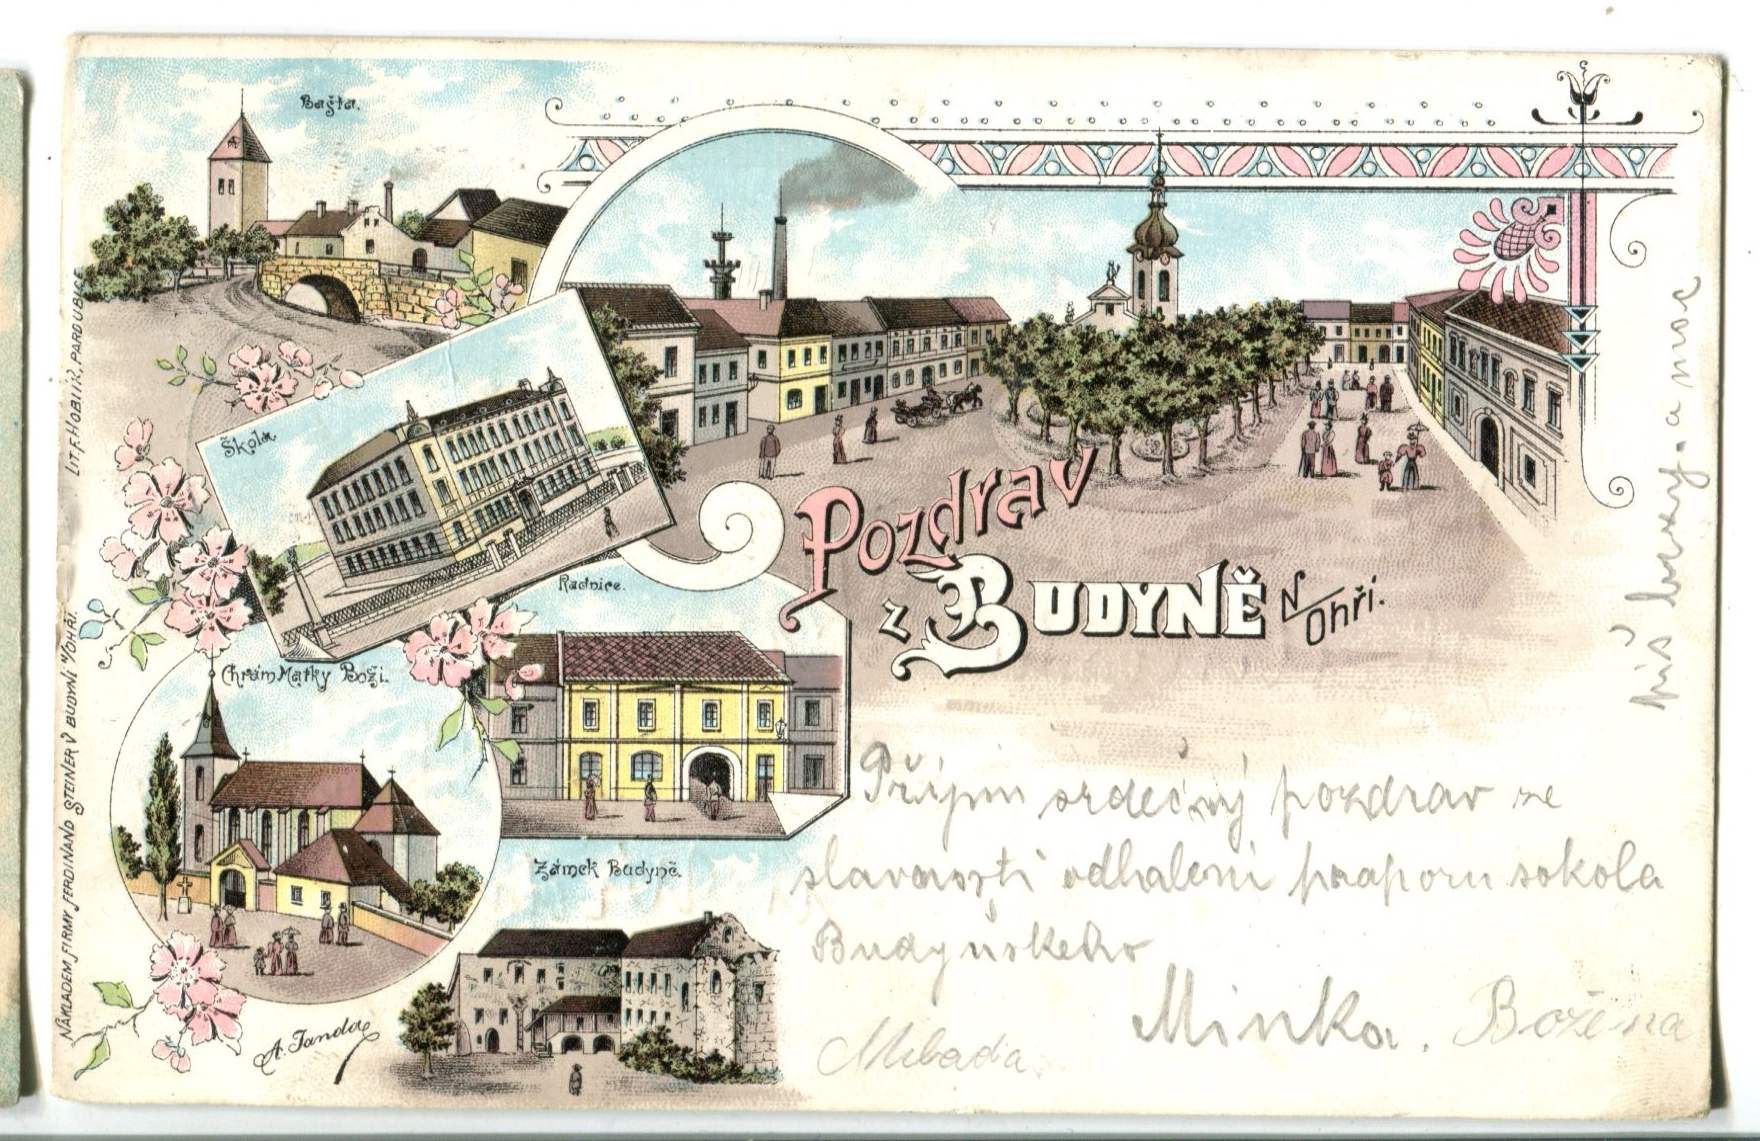 Bašta.
Škola.
Pozdrav
z BUDYNĚ N/OHŘÍ.
Radnice.
Chrám Matky Boží.
Zámek Budyně.
A. Janda
LIT. F. HOBLÍK, PARDUBICE
NÁKLADEM FIRMY FERDINAND STEINER V BUDYNI N/OHŘÍ.
Přijmi srdečný pozdrav ze
slavnosti odhalení praporu sokola
Budyňského
Minka. Božena
Mlada
piš a